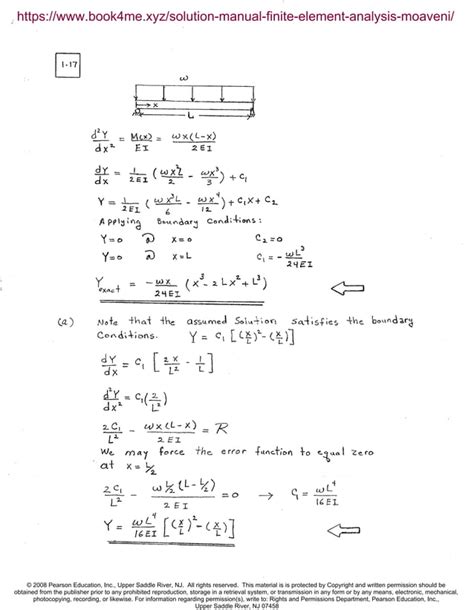 https://www.book4me.xyz/solution-manual-finite-element-analysis-moaveni/
1-17
ω
x
L
d²Y/dx² = M(x)/EI = ωx(L-x)/2EI
dY/dx = 1/2EI (ωx²L/2 - ωx³/3) + C₁
Y = 1/2EI (ωx³L/6 - ωx⁴/12) + C₁x + C₂
Applying Boundary Conditions:
Y=0 @ x=0 C₂=0
Y=0 @ x=L C₁ = -ωL³/24EI
Y exact = -ωx/24EI (x³ - 2Lx² + L³)
(a) Note that the assumed solution satisfies the boundary
Conditions. Y = C₁ [(x/L)² - (x/L)]
dY/dx = C₁ [2x/L² - 1/L]
d²Y/dx² = C₁(2/L²)
2C₁/L² - ωx(L-x)/2EI = R
We may force the error function to equal zero
at x = L/2
2C₁/L² - ωL/2(L-L/2)/2EI = 0 → C₁ = ωL⁴/16EI
Y = ωL⁴/16EI [(x/L)² - (x/L)]
© 2008 Pearson Education, Inc., Upper Saddle River, NJ. All rights reserved. This material is is protected by Copyright and written permission should be
obtained from the publisher prior to any prohibited reproduction, storage in a retrieval system, or transmission in any form or by any means, electronic, mechanical,
photocopying, recording, or likewise. For information regarding permission(s), write to: Rights and Permissions Department, Pearson Education, Inc.,
Upper Saddle River, NJ 07458